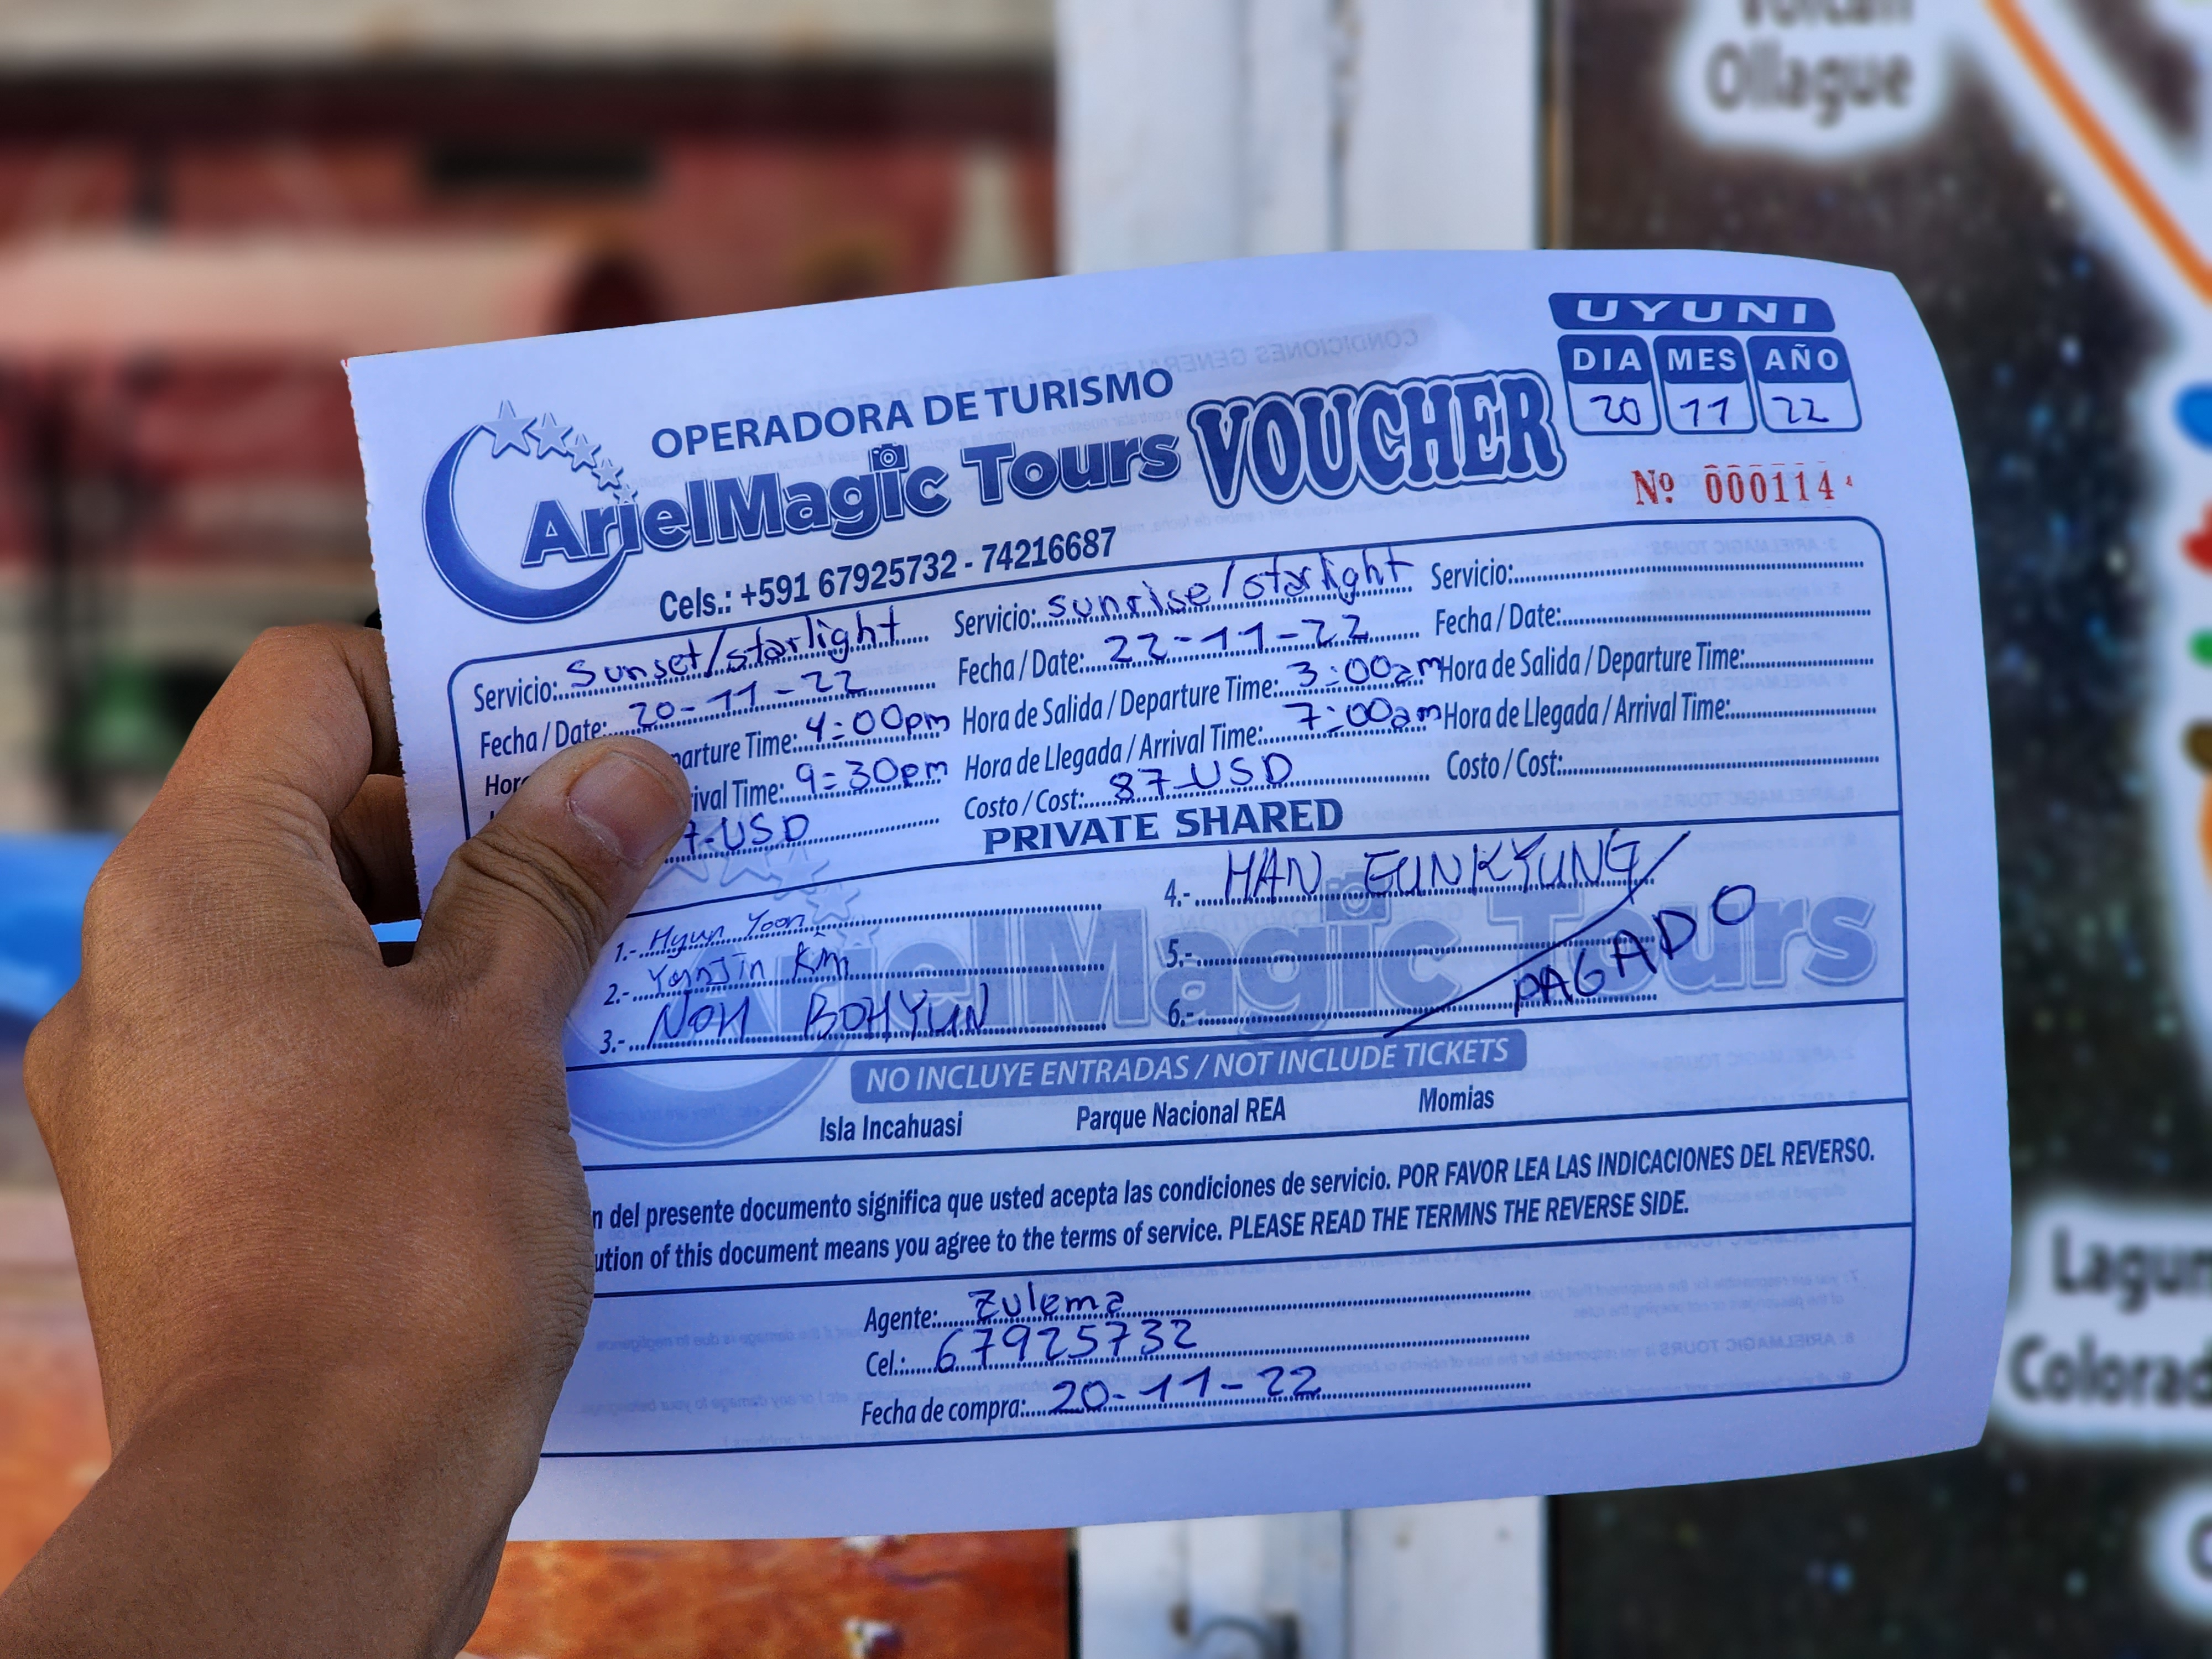 Volcan
Ollague
UYUNI
DIA MES AÑO
20 11 22
OPERADORA DE TURISMO
ArielMagic Tours VOUCHER
Nº 000114
Cels.: +591 67925732 - 74216687
Servicio: Sunset/starlight
Fecha / Date: 20-11-22
Hora parture Time: 4:00pm
ival Time: 9:30pm
7-USD
Servicio: sunrise/starlight
Fecha / Date: 22-11-22
Hora de Salida / Departure Time: 3:00am
Hora de Llegada / Arrival Time: 7:00am
Costo / Cost: 87-USD
Servicio:
Fecha / Date:
Hora de Salida / Departure Time:
Hora de Llegada / Arrival Time:
Costo / Cost:
PRIVATE SHARED
1.- Hyun Yoon
2.- YonJin Kim
3.- NOH BOHYUN
4.- HAN EUNKYUNG
5.-
6.-
PAGADO
ArielMagic Tours
NO INCLUYE ENTRADAS / NOT INCLUDE TICKETS
Isla Incahuasi Parque Nacional REA Momias
n del presente documento significa que usted acepta las condiciones de servicio. POR FAVOR LEA LAS INDICACIONES DEL REVERSO.
ution of this document means you agree to the terms of service. PLEASE READ THE TERMNS THE REVERSE SIDE.
Agente: Zulema
Cel.: 67925732
Fecha de compra: 20-11-22
Lagun
Colorad